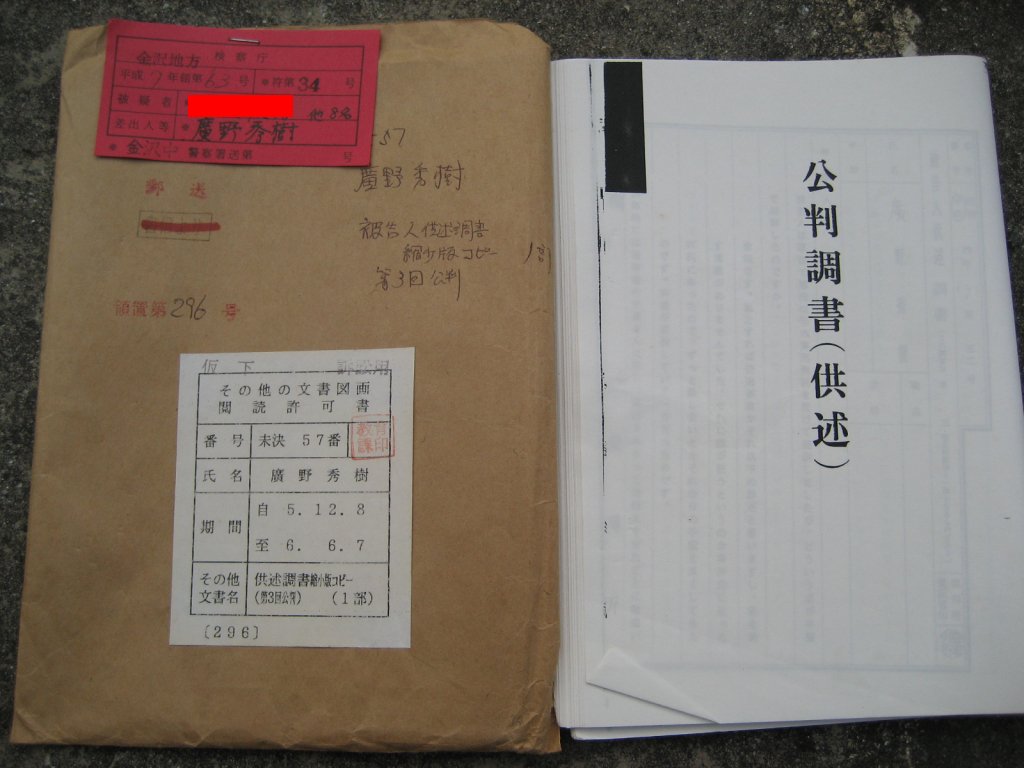 金沢地方 検察庁
平成 7 年領第 63 号 符第 34 号
被疑者 他8名
差出人等 廣野秀樹
金沢中 警察署送第 号
郵送
-57
廣野秀樹
被告人供述調書
縮少版コピー 1部
第3回公判
領置第296号
仮下 訴訟用
その他の文書図画
閲読許可書
番号 未決 57番
教育
課印
氏名 廣野秀樹
期間 自 5.12.8
至 6. 6.7
その他 供述調書縮小版コピー
文書名 (第3回公判) (1部)
[296]
公判調書(供述)